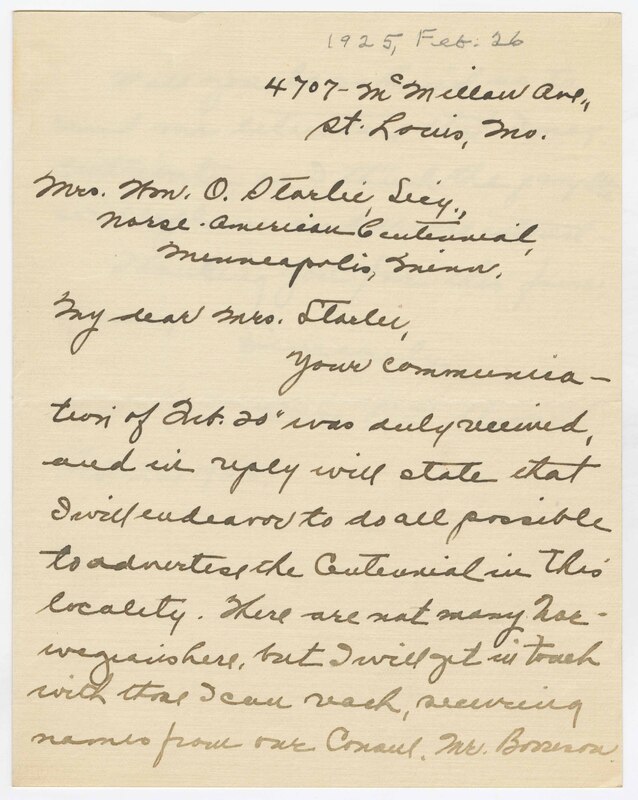 1925, Feb. 26
4707- McMillan Ave.,
St. Louis, Mo.
Mrs. Wm. O. Storlie, Secy.,
Norse-American Centennial,
Minneapolis, Minn.
My dear Mrs. Storlie,
Your communica-
tion of Feb. 20" was duly received,
and in reply will state that
I will endeavor to do all possible
to advertise the Centennial in this
locality. There are not many Nor-
wegians here, but I will get in touch
with those I can reach, securing
names from our Consul, Mr.